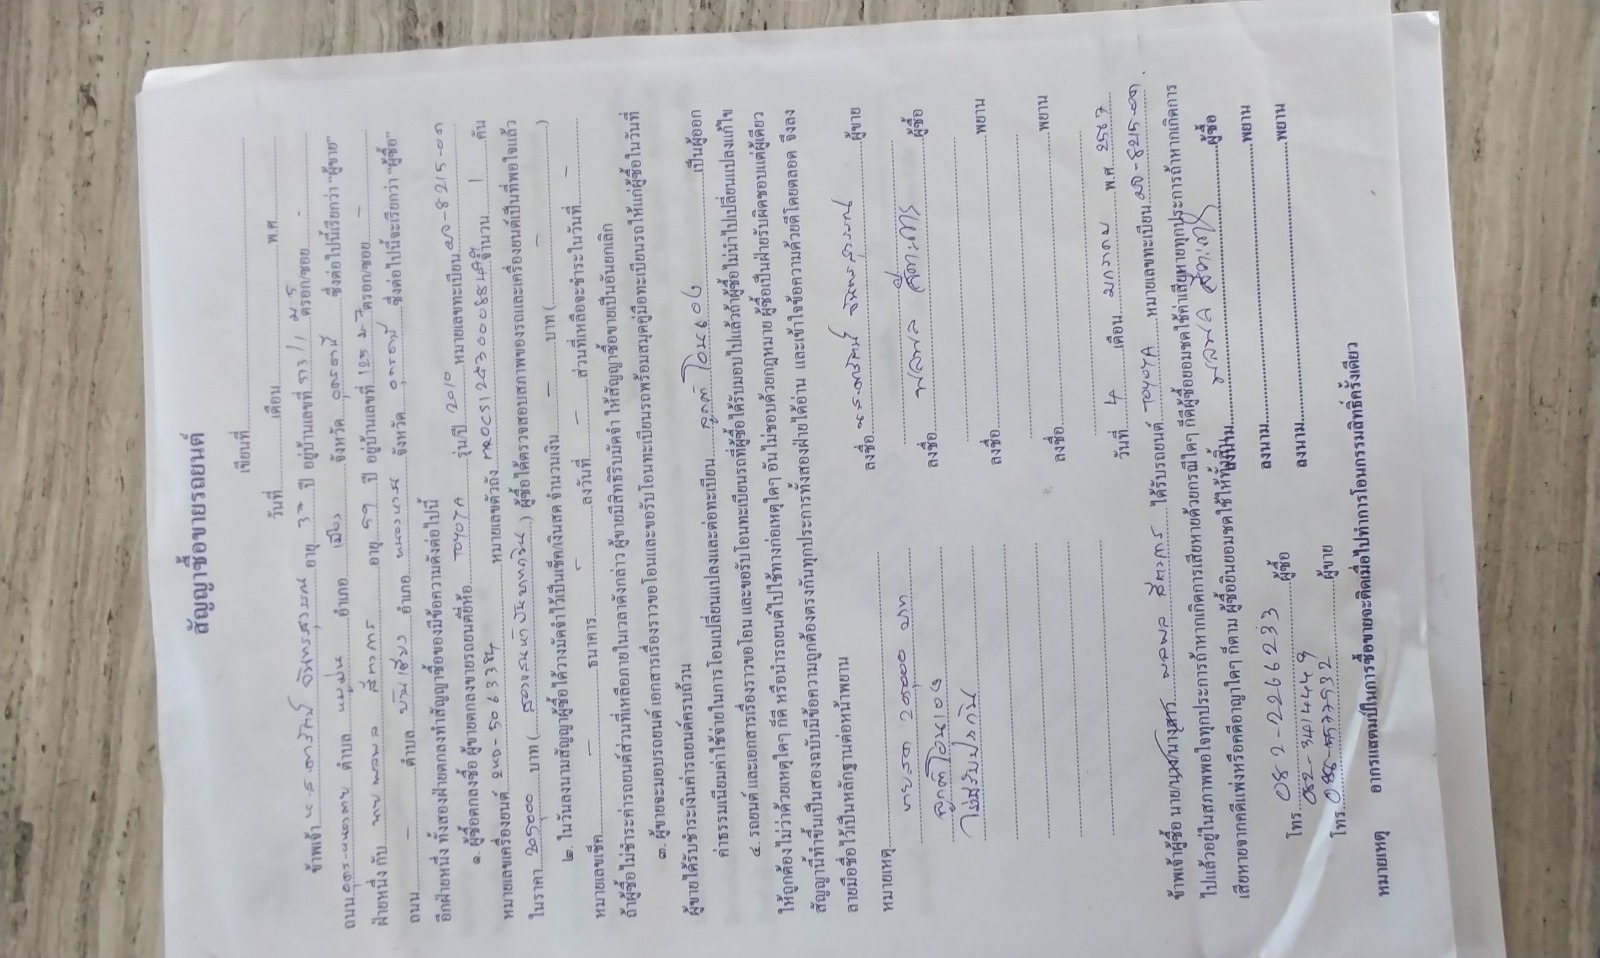 สัญญาซื้อขายรถยนต์
เขียนที่
วันที่ เดือน พ.ศ.
ข้าพเจ้า น.ส. อายุ ปี อยู่บ้านเลขที่ ตรอก/ซอย -
ถนน อุดร- ตำบล อำเภอ เมือง จังหวัด อุดรธานี ซึ่งต่อไปนี้เรียกว่า "ผู้ขาย"
ฝ่ายหนึ่ง กับ นาย พลพล อายุ ปี อยู่บ้านเลขที่ ตรอก/ซอย -
ถนน - ตำบล บ้านเชียง อำเภอ หนองหาน จังหวัด อุดรธานี ซึ่งต่อไปนี้จะเรียกว่า "ผู้ซื้อ"
อีกฝ่ายหนึ่ง ทั้งสองฝ่ายตกลงทำสัญญาซื้อของมีข้อความดังต่อไปนี้
๑. ผู้ซื้อตกลงซื้อ ผู้ขายตกลงขายรถยนต์ยี่ห้อ TOYOTA รุ่น/ปี 2010 หมายเลขทะเบียน
หมายเลขเครื่องยนต์ หมายเลขตัวถัง จำนวน 1 คัน
ในราคา 205,000 บาท ( สองแสนห้าพันบาทถ้วน ) ผู้ซื้อได้ตรวจสอบสภาพของรถและเครื่องยนต์เป็นที่พอใจแล้ว
๒. ในวันลงนามสัญญาผู้ซื้อได้วางมัดจำไว้เป็นเช็ค/เงินสด จำนวนเงิน - บาท ( - )
หมายเลขเช็ค - ธนาคาร - ลงวันที่ - ส่วนที่เหลือจะชำระในวันที่ -
ถ้าผู้ซื้อไม่ชำระค่ารถยนต์ส่วนที่เหลือภายในเวลาดังกล่าว ผู้ขายมีสิทธิริบมัดจำ ให้สัญญาซื้อขายเป็นอันยกเลิก
๓. ผู้ขายจะมอบรถยนต์ เอกสารเรื่องราวขอโอนและขอรับโอนทะเบียนรถพร้อมสมุดคู่มือทะเบียนรถให้แก่ผู้ซื้อในวันที่
ผู้ขายได้รับชำระเงินค่ารถยนต์ครบถ้วน
ค่าธรรมเนียมค่าใช้จ่ายในการโอนเปลี่ยนแปลงและต่อทะเบียน ลูกค้าโอนเอง เป็นผู้ออก
๔. รถยนต์ และเอกสารเรื่องราวขอโอน และขอรับโอนทะเบียนรถที่ผู้ซื้อได้รับมอบไปแล้วถ้าผู้ซื้อไม่นำไปเปลี่ยนแปลงแก้ไข
ให้ถูกต้องไม่ว่าด้วยเหตุใดๆ ก็ดี หรือนำรถยนต์ไปใช้ทางก่อเหตุใดๆ อันไม่ชอบด้วยกฎหมาย ผู้ซื้อเป็นฝ่ายรับผิดชอบแต่ผู้เดียว
สัญญานี้ทำขึ้นเป็นสองฉบับมีข้อความถูกต้องตรงกันทุกประการทั้งสองฝ่ายได้อ่าน และเข้าใจข้อความด้วยดีโดยตลอด จึงลง
ลายมือชื่อไว้เป็นหลักฐานต่อหน้าพยาน
หมายเหตุ
ขายสด 205,000 บาท
ลูกค้าโอนเอง
ไม่มีรับประกัน
ลงชื่อ น.ส. ผู้ขาย
ลงชื่อ พลพล ผู้ซื้อ
ลงชื่อ พยาน
ลงชื่อ พยาน
วันที่ 4 เดือน มกราคม พ.ศ. 2567
ข้าพเจ้าผู้ซื้อ นาย/นาง/นางสาว พลพล ได้รับรถยนต์ TOYOTA หมายเลขทะเบียน
ไปแล้วอยู่ในสภาพพอใจทุกประการถ้าหากเกิดการเสียหายด้วยกรณีใดๆ ก็ดีผู้ซื้อยอมชดใช้ค่าเสียหายทุกประการถ้าหากเกิดการ
เสียหายจากคดีแพ่งหรือคดีอาญาใดๆ ก็ตาม ผู้ซื้อยินยอมชดใช้ให้ทั้งสิ้น
ลงนาม พลพล ผู้ซื้อ
ลงนาม พยาน
ลงนาม พยาน
โทร. 082-2266233 ผู้ซื้อ
082-3414449
โทร. ผู้ขาย
หมายเหตุ อากรแสตมป์ในการซื้อขายจะติดเมื่อไปทำการโอนกรรมสิทธิ์ครั้งเดียว